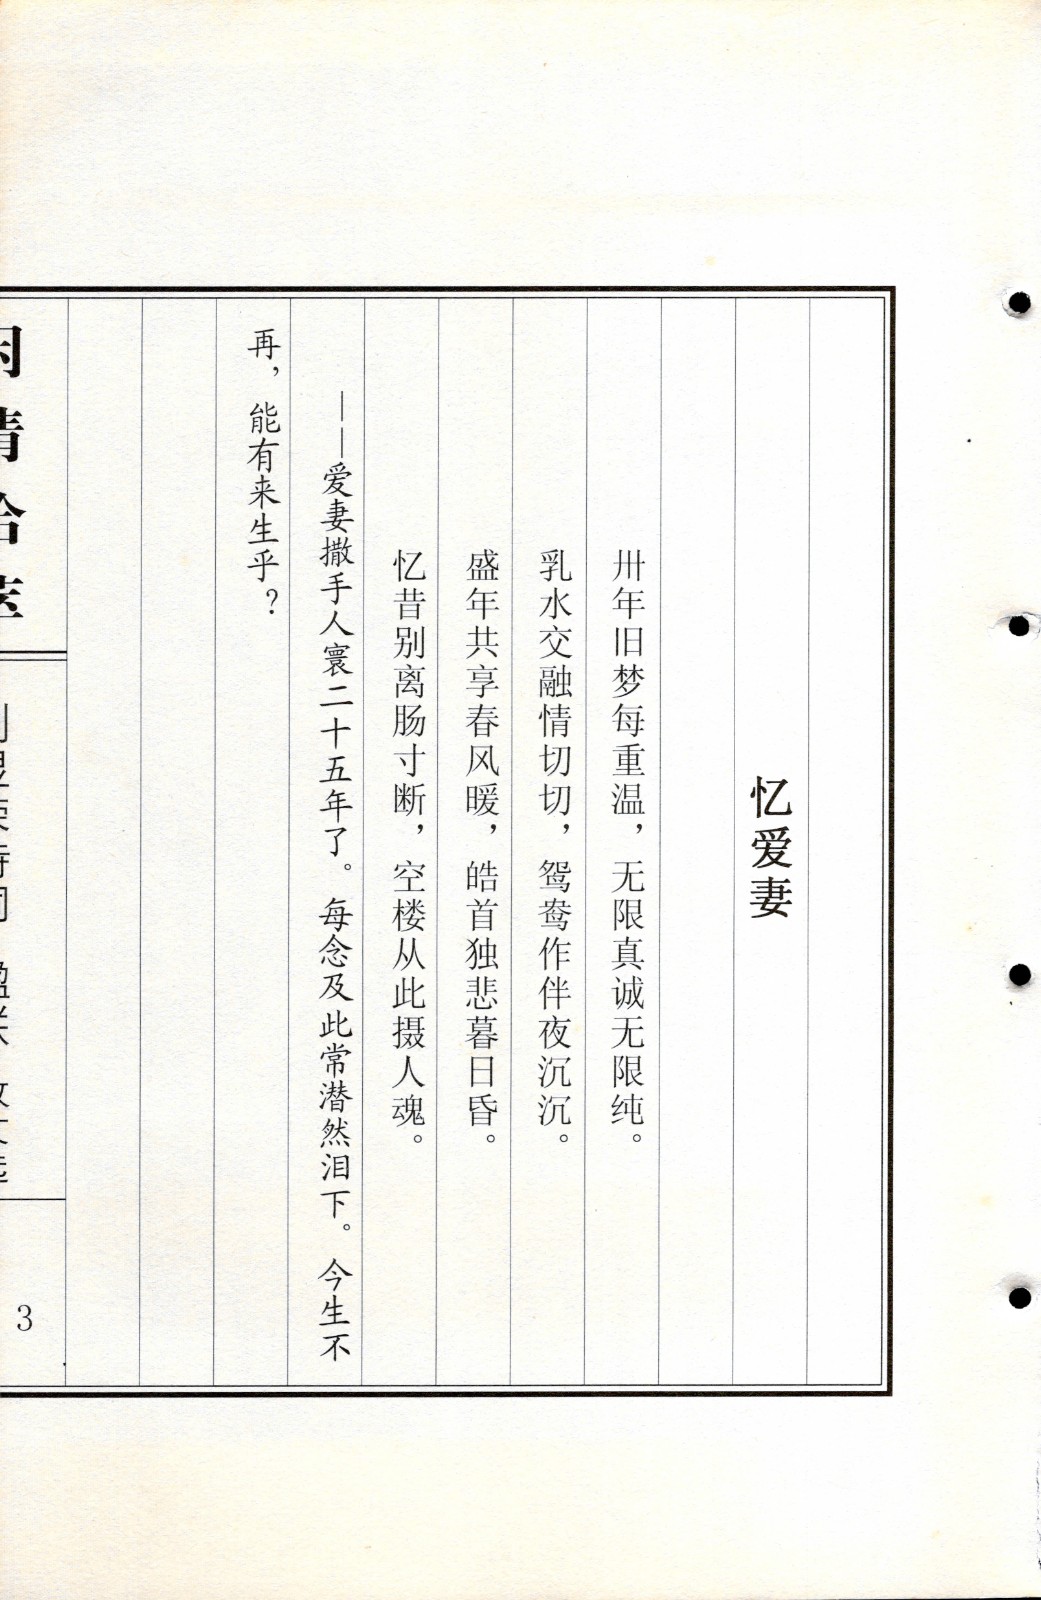 忆爱妻
卅年旧梦每重温，无限真诚无限纯。
乳水交融情切切，鸳鸯作伴夜沉沉。
盛年共享春风暖，皓首独悲暮日昏。
忆昔别离肠寸断，空楼从此摄人魂。
——爱妻撒手人寰二十五年了。每念及此常潸然泪下。今生不
再，能有来生乎？
3